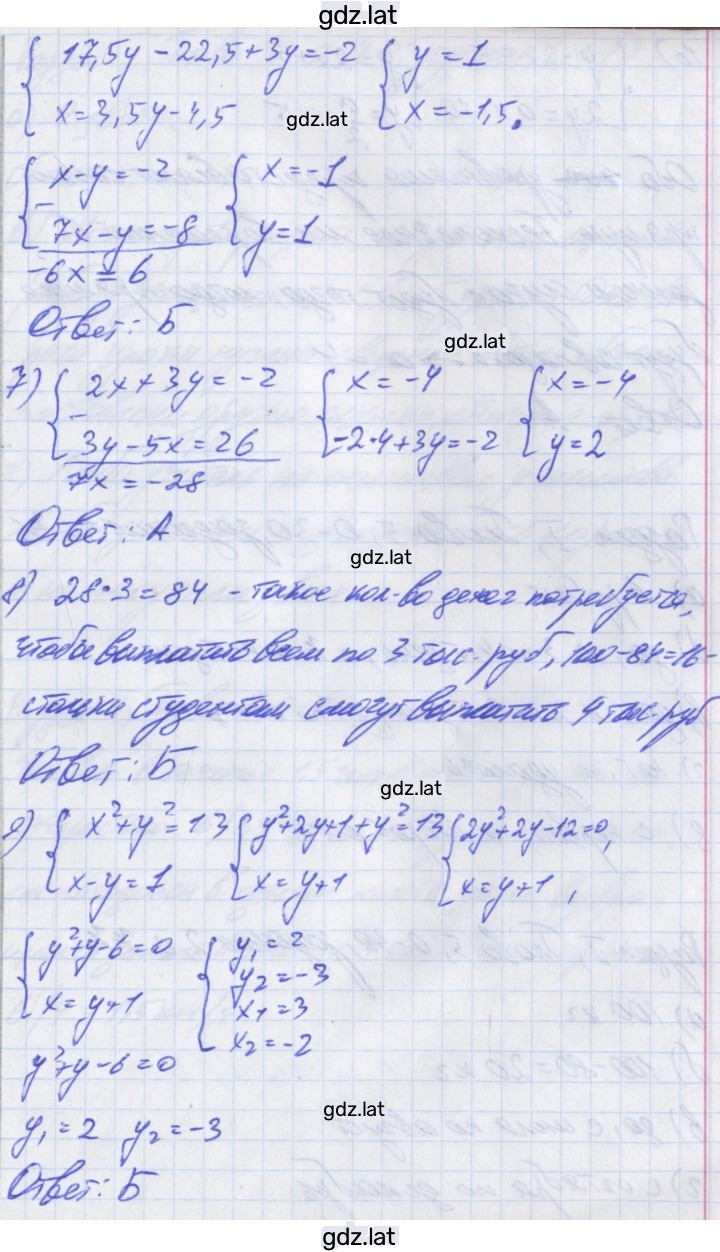 gdz.lat
{ 17,5y - 22,5 + 3y = -2 { y = 1
x = 3,5y - 4,5 gdz.lat x = -1,5.
{ x - y = -2 { x = -1
- 7x - y = -8 y = 1
-6x = 6
Ответ: Б
gdz.lat
7) { 2x + 3y = -2 { x = -4 { x = -4
- 3y - 5x = 26 -2·4 + 3y = -2 y = 2
7x = -28
Ответ: А
gdz.lat
8) 28·3 = 84 - такое кол-во денег потребуется,
чтобы выплатить всем по 3 тыс. руб, 100-84=16-
стольки студентам смогут выплатить 4 тыс. руб
Ответ: Б
gdz.lat
9) { x² + y² = 13 { y² + 2y + 1 + y² = 13 { 2y² + 2y - 12 = 0,
x - y = 1 x = y + 1 x = y + 1,
{ y² + y - 6 = 0 { y₁ = 2
y₂ = -3
x = y + 1 x₁ = 3
x₂ = -2
y² + y - 6 = 0
gdz.lat
y₁ = 2 y₂ = -3
Ответ: Б
gdz.lat